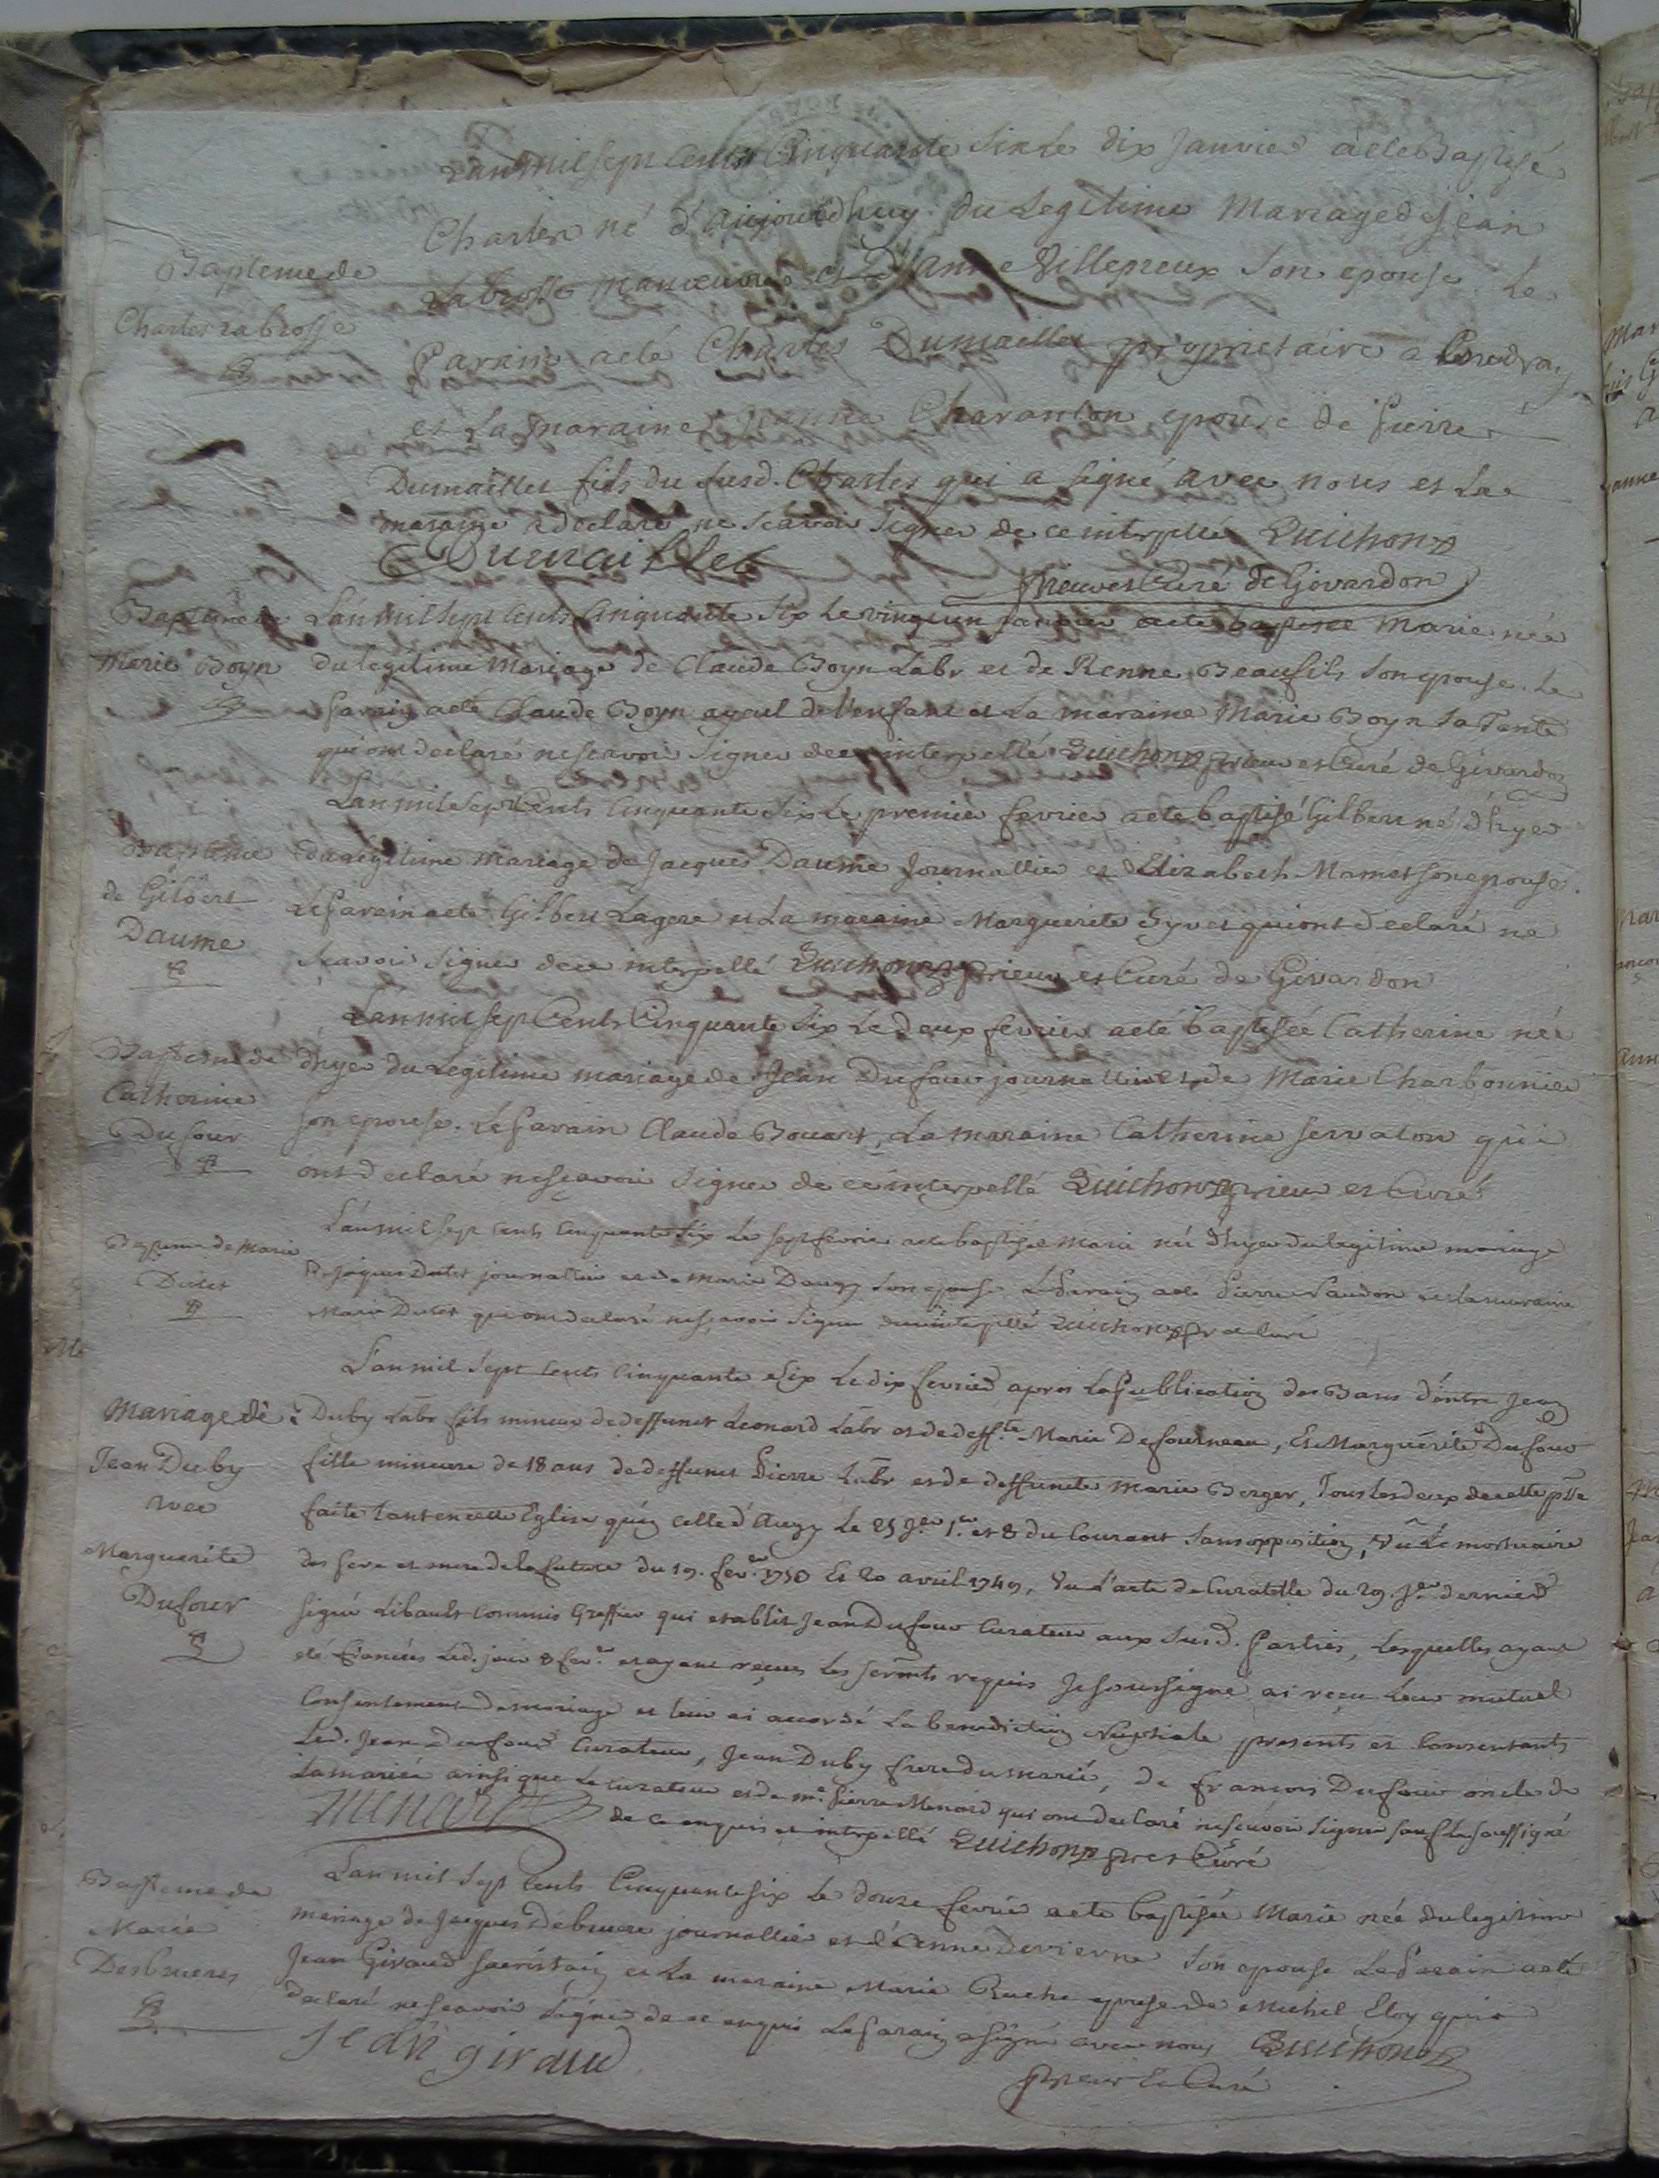 L'an mil sept Cents Cinquante Six Le dix Janvier a ete Baptisé
Bapteme de
Charles Labrosse
Charles né d'aujourdhuy du Legitime Mariage de Jean
Labrosse manoeuvre et d'anne Villepreux Son epouse. Le
Parain a eté Charles Dumaillet proprietaire a
et La maraine Jeanne Charanton epouse de Pierre
Dumaillet fils du Susd. Charles qui a signé avec nous et La
maraine a declaré ne Scavoir Signer de ce interpellé Quichon
Dumaillet
Prieur et Curé de Givardon
Bapteme de
Marie Boyn
L'an mil Sept Cents Cinquante Six Le vingt un janvier a eté baptisée Marie née
du legitime Mariage de Claude Boyn Labr et de Renne Beaufils Son epouse. Le
Parain a eté Claude Boyn ayeul de l'enfant et La maraine Marie Boyn Sa Tante
qui ont declaré ne scavoir Signer de ce interpellé Quichon prieur et Curé de Givardon
Bapteme
de Gilbert
Daume
L'an mil Sept Cents Cinquante Six Le premier fevrier a eté baptisé Gilbert né d'hyer
du legitime mariage de Jacques Daume Journallier et d'Elizabeth Mamet Son epouse.
Le Parain a eté Gilbert Lagere et La maraine Marguerite qui ont declaré ne
Scavoir Signer de ce interpellé Quichon prieur et Curé de Givardon
Bapteme de
Catherine
Dufour
L'an mil Sept Cents Cinquante Six Le deux fevrier a eté baptisée Catherine née
d'hyer du Legitime mariage de Jean Dufour journallier et de Marie Charbonnier
Son epouse. Le Parain Claude Bouart, La maraine Catherine Servaton qui
ont declaré ne scavoir Signer de ce interpellé Quichon prieur et Curé
Bapteme de Marie
Dutet
L'an mil Sept Cents Cinquante Six Le Sept fevrier a eté baptisée Marie née d'hyer du legitime mariage
De Jaques Dutet journallier et de Marie Daugy Son epouse Le Parain a eté Pierre et La maraine
Marie Dutet qui ont declaré ne scavoir Signer de ce interpellé Quichon pr et Curé
Mariage de
Jean Duby
avec
Marguerite
Dufour
L'an mil Sept Cents Cinquante Six Le dix fevrier apres La Publication des Bans d'entre Jean
Duby Labr fils mineur de deffunct Leonard Labr et de deff.te Marie Defourneau, Et Marguerite Dufour
fille mineure de 18 ans de deffunct Pierre Labr et de deffuncte Marie Berger, Tous Les deux de cette psse
faite tant en cette Eglise qu'en celle d'Augy Le 25 J.er 1.er et 8 du Courant Sans opposition, Vu Le mortuaire
des Pere et mere de la future du 19. fev.er 1750 Et 20 avril 1749, Vu l'acte de Curatelle du 29 J.er dernier
Signé Libault Commis Greffier qui etablit Jean Dufour Curateur aux Susd. Parties, Lesquelles ayant
eté fiancées Led. jour 8 fev.er et ayant reçues Les Serments requis Je Soussigné ai reçu Leur mutuel
Consentement de mariage et leur ai accordé La benediction Nuptiale presents et Consentants
Led. Jean Dufour Curateur, Jean Duby frere du marié, de françois Dufour oncle de
La mariée ainsi que Le curateur et de m.e Pierre Menard qui ont declaré ne scavoir Signer sauf Le Soussigné
Menard
de ce enquis et interpellé Quichon pr et Curé
Bapteme de
Marie
Desbrueres
L'an mil Sept Cents Cinquante Six Le douze fevrier a eté baptisée Marie née du legitime
mariage de Jacques Debruere journallier et d'anne Devierne Son epouse Le Parain a eté
Jean Giraud Sacristain et La maraine Marie Ruche epouse de Michel Eloy qui a
declaré ne scavoir Signer de ce enquis Le Parain a signé avec nous Quichon
Jean giraud
Prieur et Curé